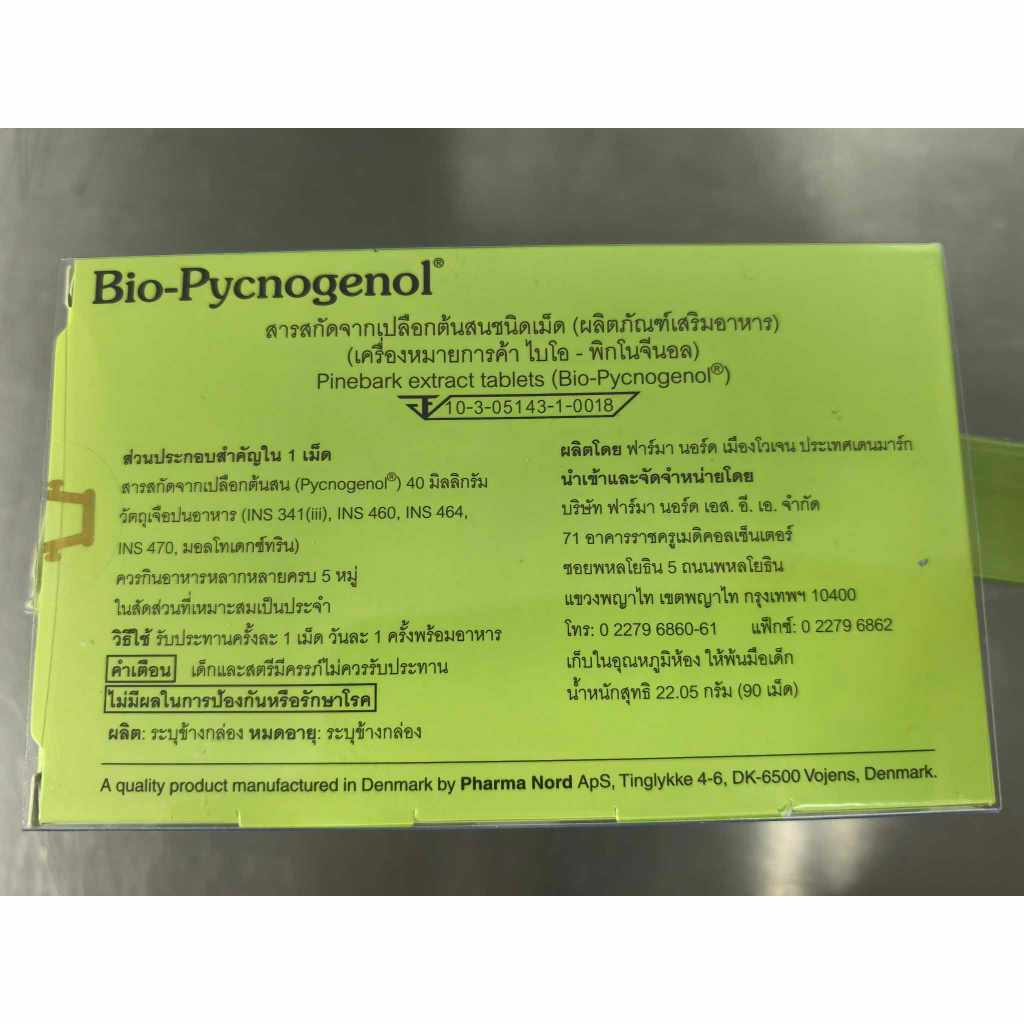 Bio-Pycnogenol®
สารสกัดจากเปลือกต้นสนชนิดเม็ด (ผลิตภัณฑ์เสริมอาหาร)
(เครื่องหมายการค้า ไบโอ - พิกโนจีนอล)
Pinebark extract tablets (Bio-Pycnogenol®)
10-3-05143-1-0018
ส่วนประกอบสำคัญใน 1 เม็ด
สารสกัดจากเปลือกต้นสน (Pycnogenol®) 40 มิลลิกรัม
วัตถุเจือปนอาหาร (INS 341(iii), INS 460, INS 464,
INS 470, มอลโทเดกซ์ทริน)
ควรกินอาหารหลากหลายครบ 5 หมู่
ในสัดส่วนที่เหมาะสมเป็นประจำ
วิธีใช้ รับประทานครั้งละ 1 เม็ด วันละ 1 ครั้งพร้อมอาหาร
คำเตือน เด็กและสตรีมีครรภ์ไม่ควรรับประทาน
ไม่มีผลในการป้องกันหรือรักษาโรค
ผลิต: ระบุข้างกล่อง หมดอายุ: ระบุข้างกล่อง
ผลิตโดย ฟาร์มา นอร์ด เมืองโวเจน ประเทศเดนมาร์ก
นำเข้าและจัดจำหน่ายโดย
บริษัท ฟาร์มา นอร์ด เอส. อี. เอ. จำกัด
71 อาคารราชครูเมดิคอลเซ็นเตอร์
ซอยพหลโยธิน 5 ถนนพหลโยธิน
แขวงพญาไท เขตพญาไท กรุงเทพฯ 10400
โทร: 0 2279 6860-61 แฟ็กซ์: 0 2279 6862
เก็บในอุณหภูมิห้อง ให้พ้นมือเด็ก
น้ำหนักสุทธิ 22.05 กรัม (90 เม็ด)
A quality product manufactured in Denmark by Pharma Nord ApS, Tinglykke 4-6, DK-6500 Vojens, Denmark.